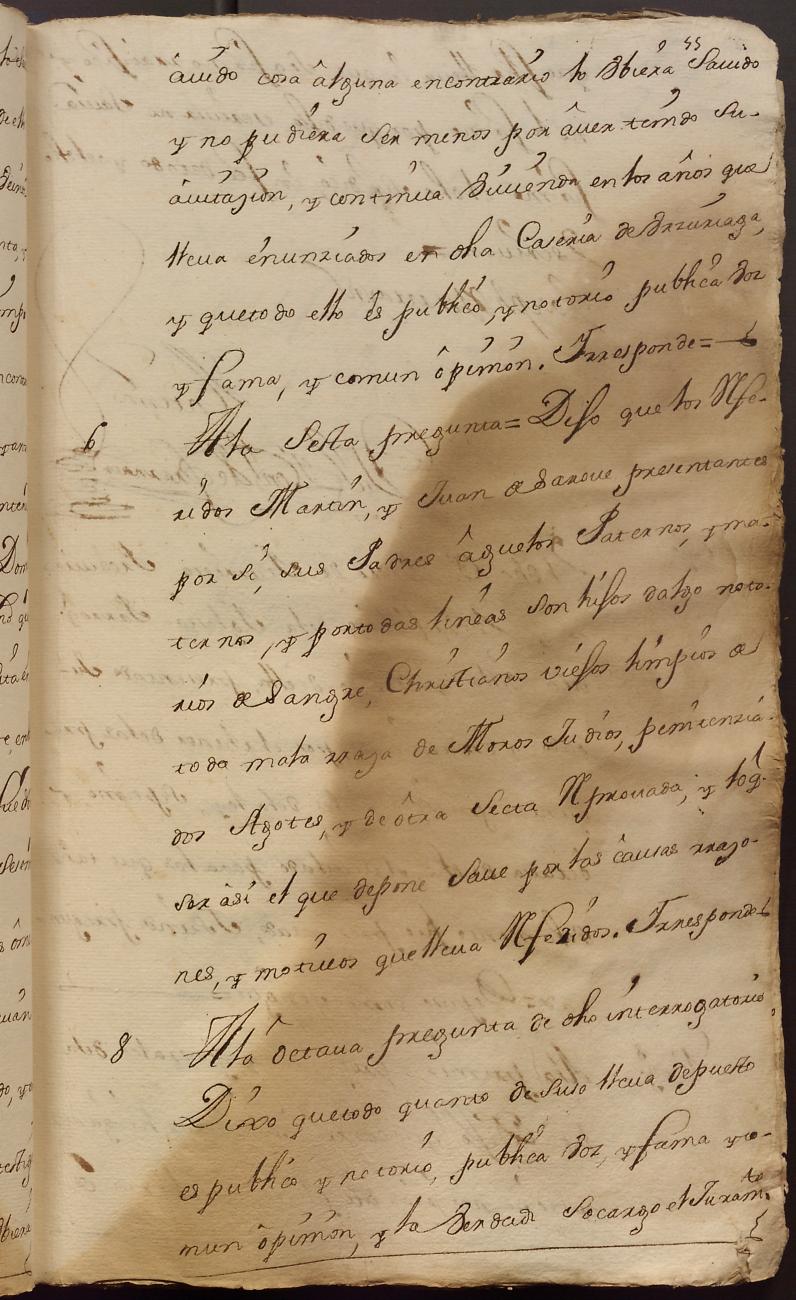 âuido cosa âlguna encontrario lo Vbiera Sauido
y no pudiera ser menos por âuer tenido su
âuitazion, y continua Viuienda en los años que
lleua enunziados en dha Caseria de Vrzuriaga,
y que todo ello es publico, y notorio publica Voz
y fama, y comun ôpinion. Y rresponde=
6 A la Sesta pregunta= Dijo que los Rfe-
ridos Martin, y Juan de Sarove presentantes
por si, sus Padres âguelos Paternos, y ma-
ternos, y por todas lineas son hijos dalgo noto-
rios de Sangre, Christianos viejos limpios de
toda mala rraza de Moros Judios, penitenzia-
dos Agotes, y de ôtra Secta Rprouada, y lo q.
ser âsi el que depone Saue por las câusas rrazo-
nes, y motiuos que lleua Rferidos. Y rresponde
8 A la octaua pregunta de dho interrogatorio,
Dixo que todo quanto de suso lleua depuesto
es publico y notorio, publica Voz, y fama y co-
mun ôpinion, y la Verdad Socargo el Juram.to